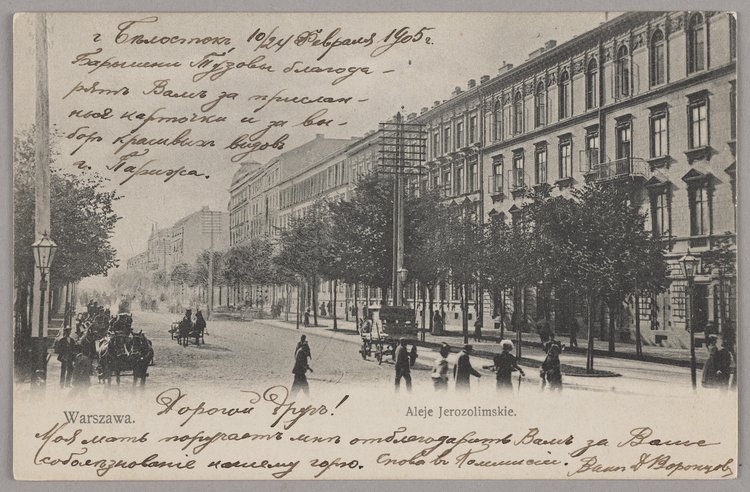 г Бѣлостокъ 10/24 Февраля 1905 г.
Барышни Тузовы благода-
рятъ Вамъ за прислан-
ныя карточки и за вы-
боръ красивыхъ видовъ
г. Парижа.
Warszawa.
Aleje Jerozolimskie.
Дорогой Другъ!
Моя мать поручаетъ мнѣ отблагодарить Вамъ за Ваше
соболѣзнованіе нашему горю. Снова въ Коммисіи. Вашъ Д Воронцовъ